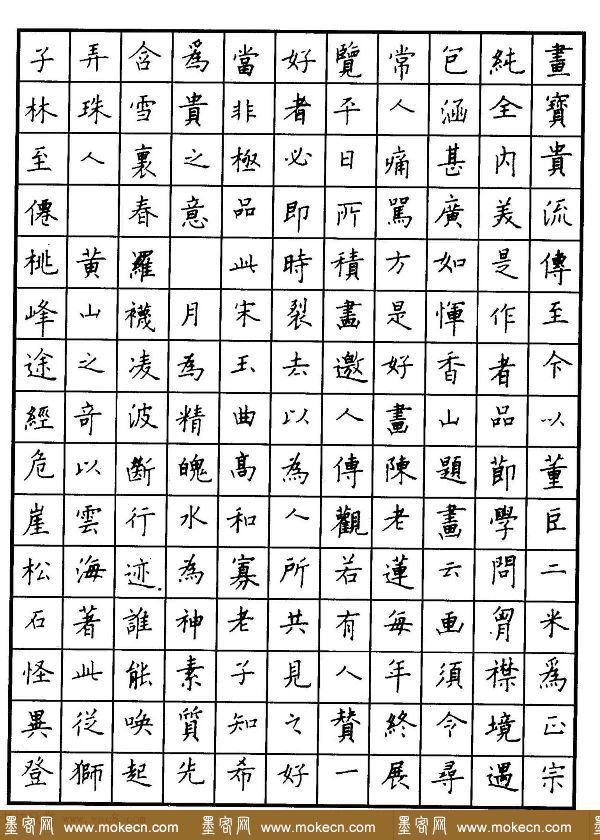 畫寶貴流傳至今以董巨二米爲正宗
純全内美是作者品節學問胷襟境遇
包涵甚廣如惲香山題畫云画須令尋
常人痛駡方是好畫陳老蓮每年終展
覽平日所積畫邀人傳觀若有人贊一
好者必即時裂去以為人所共見之好
當非極品此宋玉曲高和寡老子知希
爲貴之意 月為精魄水為神素質先
含雪裏春羅襪凌波斷行迹誰能唤起
弄珠人 黄山之奇以雲海著此従獅
子林至僊桃峰途經危崖松石怪異登
墨客网 www.mokecn.com 墨客网 www.mokecn.com 墨客网 www.mokecn.com